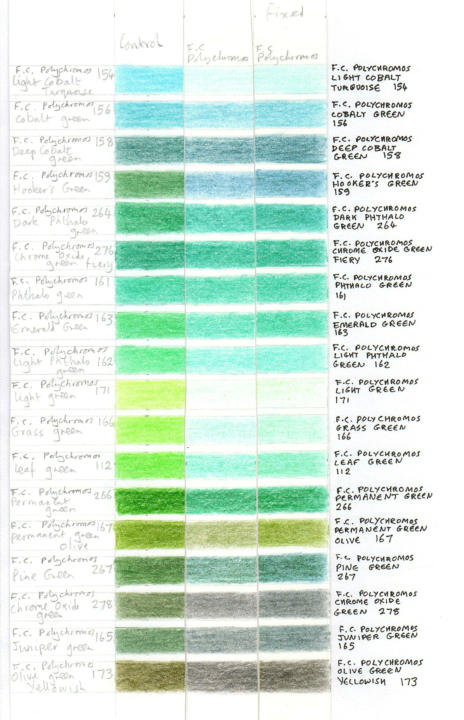 Fixed
Control
F.C
Polychromos
F.C
Polychromos
F.C. Polychromos 154
Light Cobalt
Turquoise
F.C. POLYCHROMOS
LIGHT COBALT
TURQUOISE 154
F.C. Polychromos 156
Cobalt green
F.C. POLYCHROMOS
COBALT GREEN
156
F.C. Polychromos 158
Deep Cobalt
green
F.C. POLYCHROMOS
DEEP COBALT
GREEN 158
F.C. Polychromos 159
Hooker's Green
F.C. POLYCHROMOS
HOOKER'S GREEN
159
F.C. Polychromos 264
Dark Phthalo
green
F.C. POLYCHROMOS
DARK PHTHALO
GREEN 264
F.C. Polychromos 276
Chrome Oxide
green Fiery
F.C. POLYCHROMOS
CHROME OXIDE GREEN
FIERY 276
F.C. Polychromos 161
Phthalo green
F.C. POLYCHROMOS
PHTHALO GREEN
161
F.C. Polychromos 163
Emerald Green
F.C. POLYCHROMOS
EMERALD GREEN
163
F.C. Polychromos
Light Phthalo 162
green
F.C. POLYCHROMOS
LIGHT PHTHALO
GREEN 162
F.C. Polychromos 171
Light green
F.C. POLYCHROMOS
LIGHT GREEN
171
F.C. Polychromos 166
Grass green
F.C. POLYCHROMOS
GRASS GREEN
166
F.C. Polychromos
leaf green 112
F.C. POLYCHROMOS
LEAF GREEN
112
F.C. Polychromos 266
Permanent
green
F.C. POLYCHROMOS
PERMANENT GREEN
266
F.C. Polychromos 167
Permanent green
Olive
F.C. POLYCHROMOS
PERMANENT GREEN
OLIVE 167
F.C. Polychromos
Pine Green 267
F.C. POLYCHROMOS
PINE GREEN
267
F.C. Polychromos
Chrome Oxide 278
green
F.C. POLYCHROMOS
CHROME OXIDE
GREEN 278
F.C. Polychromos 165
Juniper green
F.C. POLYCHROMOS
JUNIPER GREEN
165
F.C. Polychromos
Olive green 173
Yellowish
F.C. POLYCHROMOS
OLIVE GREEN
YELLOWISH 173